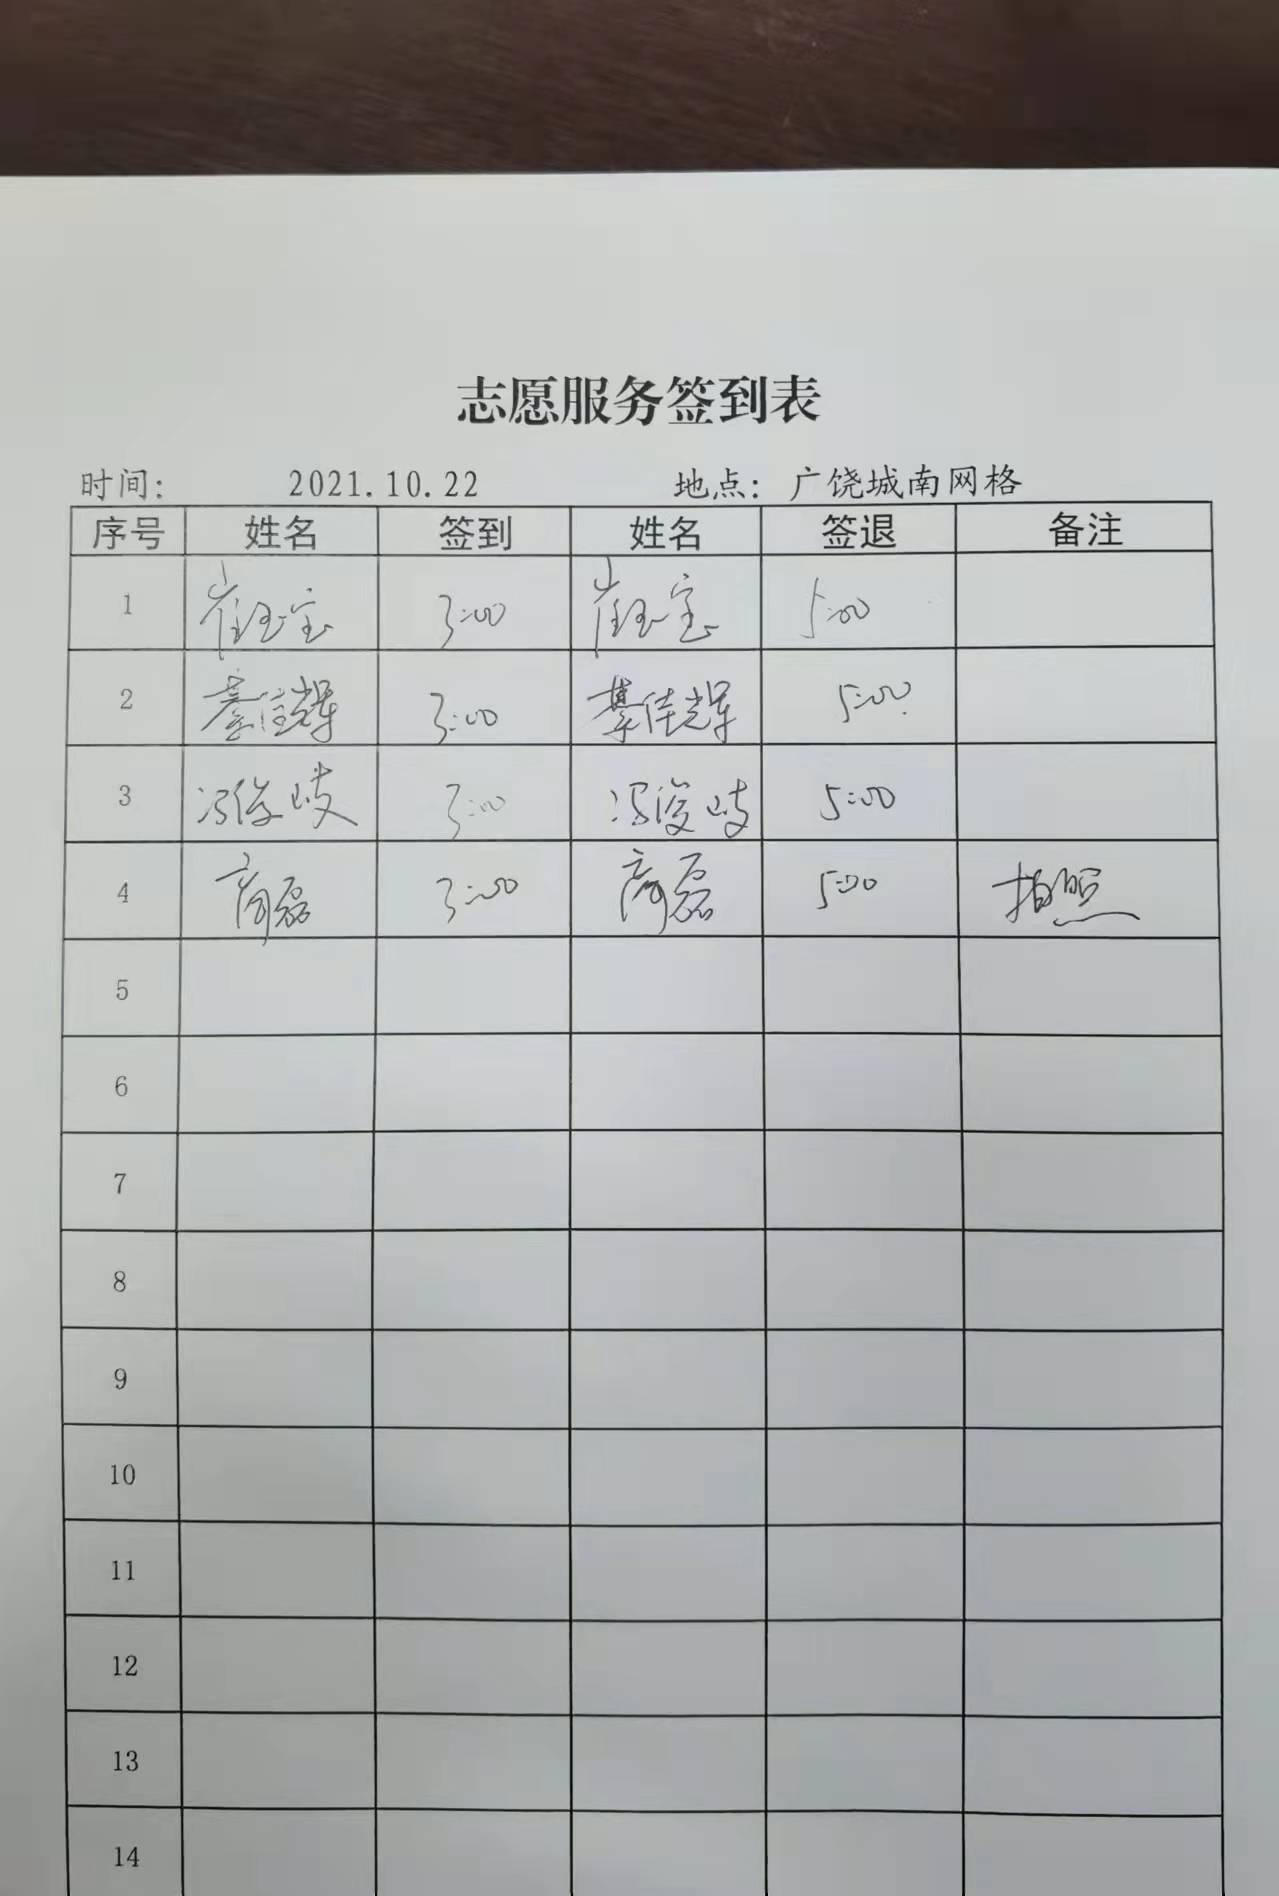 志愿服务签到表
时间： 2021.10.22 地点：广饶城南网格
序号 姓名 签到 姓名 签退 备注
1 崔玉宝 3:00 崔玉宝 5:00
2 綦佳辉 3:00 綦佳辉 5:00
3 冯俊岐 3:00 冯俊岐 5:00
4 商磊 3:00 商磊 5:00 拍照
5
6
7
8
9
10
11
12
13
14